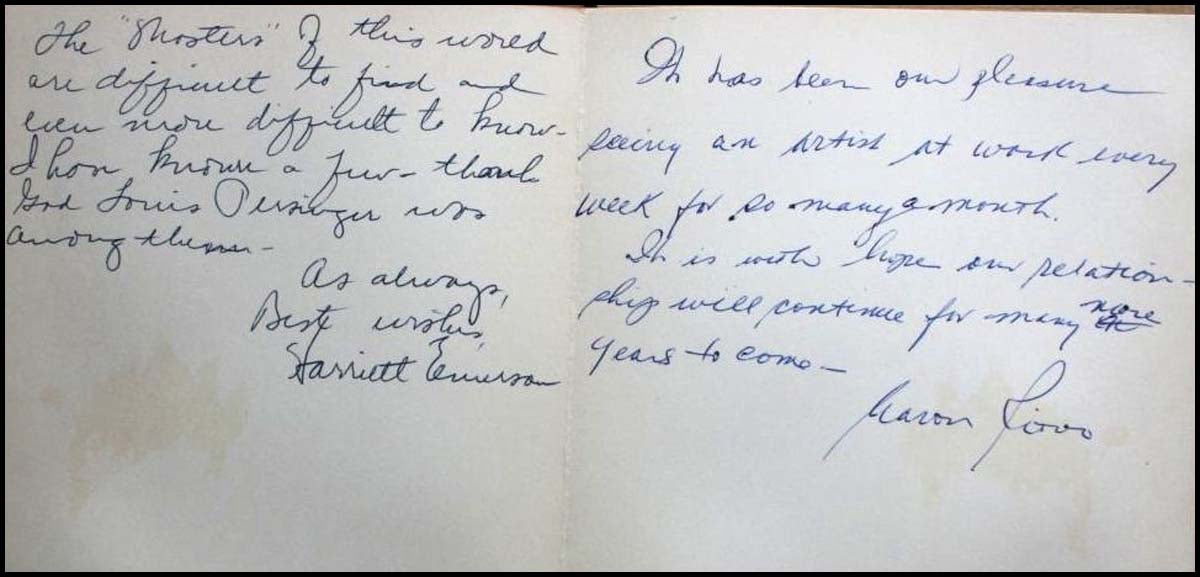 The "Masters" of this world
are difficult to find and
even more difficult to know-
I have known a few - thank
God Louis Persinger was
among them -
As always,
Best wishes,
Harriett Emerson
It has been our pleasure
seeing an artist at work every
week for so many a month.
It is with hope our relation-
ship will continue for many more
years to come -
Aaron